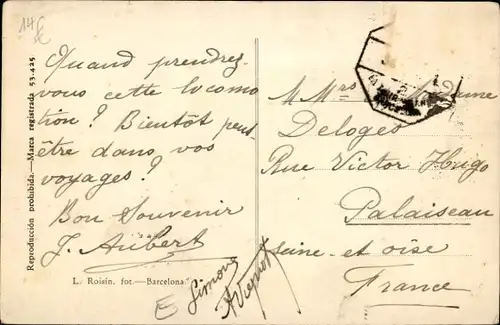 14
Reproducción prohibida.—Marca registrada 53.425
Quand prendrez
vous cette locomo
tion? Bientôt peut
être dans vos
voyages?
Bon Souvenir
J. Aubert
L. Roisin. fot.—Barcelona
Simone
M Mrs
Deloges
Rue Victor Hugo
Palaiseau
Seine et oise
France